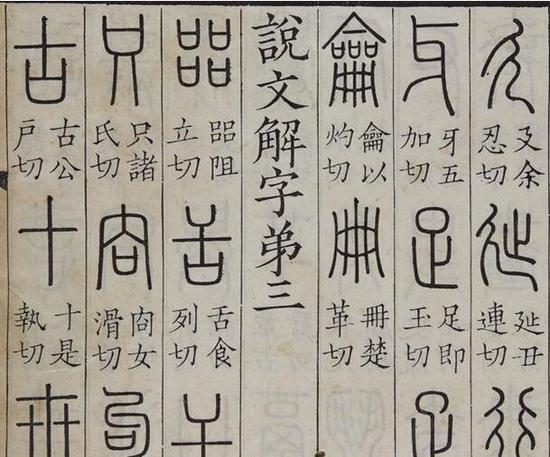 廴廴余忍切㢟㢟丑連切行
牙牙五加切足足即玉切疋
龠龠以灼切冊冊楚革切
說文解字弟三
㗊㗊阻立切舌舌食列切干
只只諸氏切㕯㕯女滑切句
古古公戶切十十是執切卅